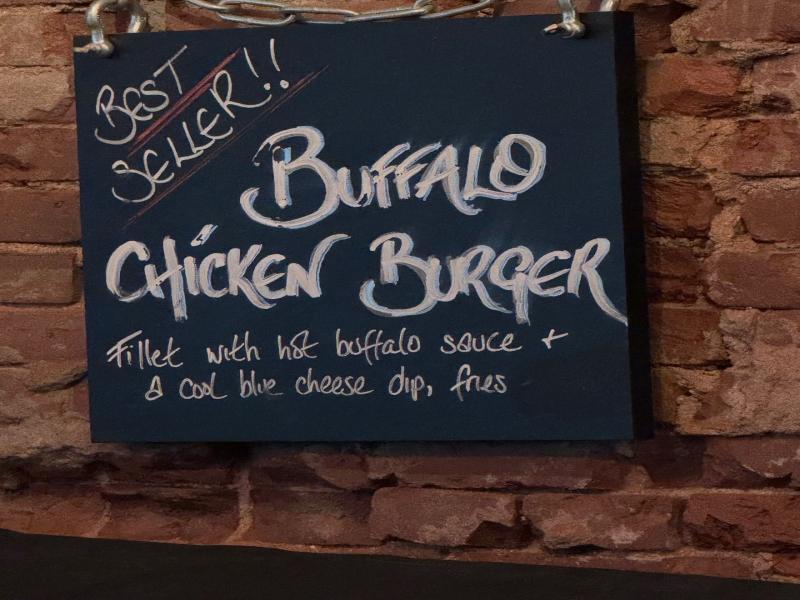 BEST
SELLER!!
BUFFALO
CHICKEN BURGER
Fillet with hot buffalo sauce +
a cool blue cheese dip, fries